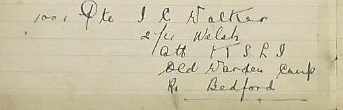 1001 Pte I C Walker
2/4 Welsh
Att K S L I
Old Warden Camp
Nr Bedford